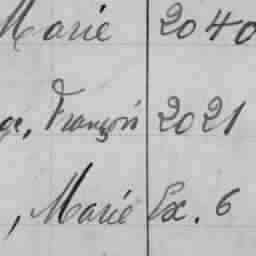 Marie 2040
ge, François 2021
, Marie Ex. 6